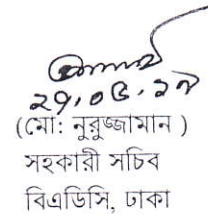 ২৭.০৫.১৭
(মো: নুরুজ্জামান )
সহকারী সচিব
বিএডিসি, ঢাকা